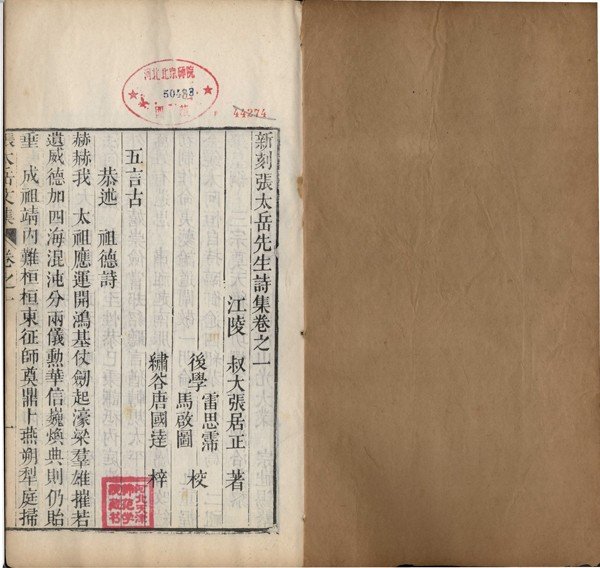 河北北京師院
50483
44274
新刻張太岳先生詩集卷之一
江陵 叔大張居正 著
後學 雷思霈
馬啟圖 校
繡谷唐國達 梓
五言古
恭述 祖德詩
赫赫我 太祖應運開鴻基仗劒起濠梁羣雄摧若
遺威德加四海混沌分兩儀勲華信巍煥典則仍貽
垂 成祖靖內難桓桓東征師奠鼎卜燕朔犁庭掃
張太岳文集 卷之一 一